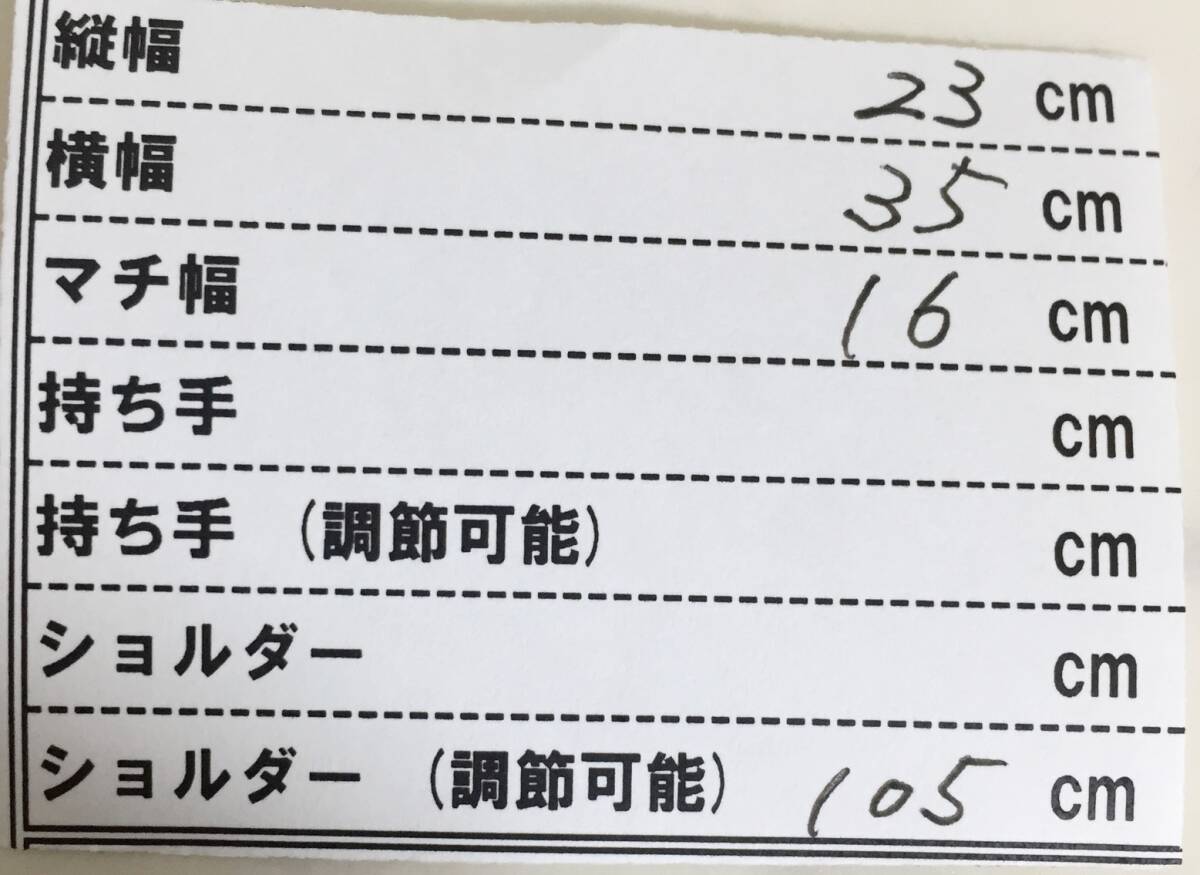 縦幅 23 cm
横幅 35 cm
マチ幅 16 cm
持ち手 cm
持ち手 (調節可能) cm
ショルダー cm
ショルダー (調節可能) 105 cm